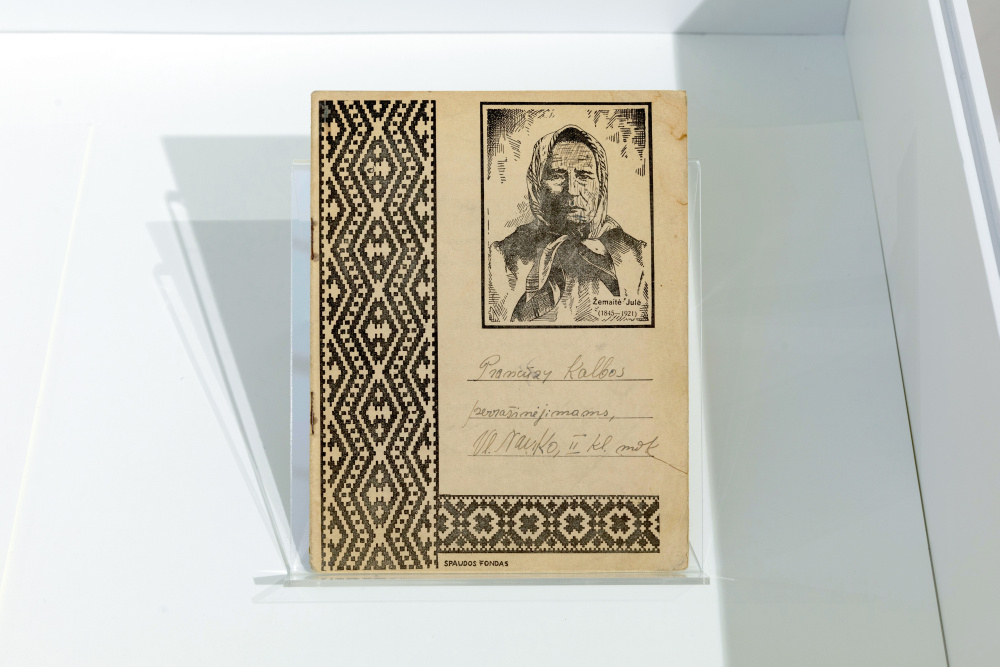 Žemaitė "Julė"
(1845–1921)
Prancūzų Kalbos
perrašinėjimams,
Vl. II kl. mok
SPAUDOS FONDAS